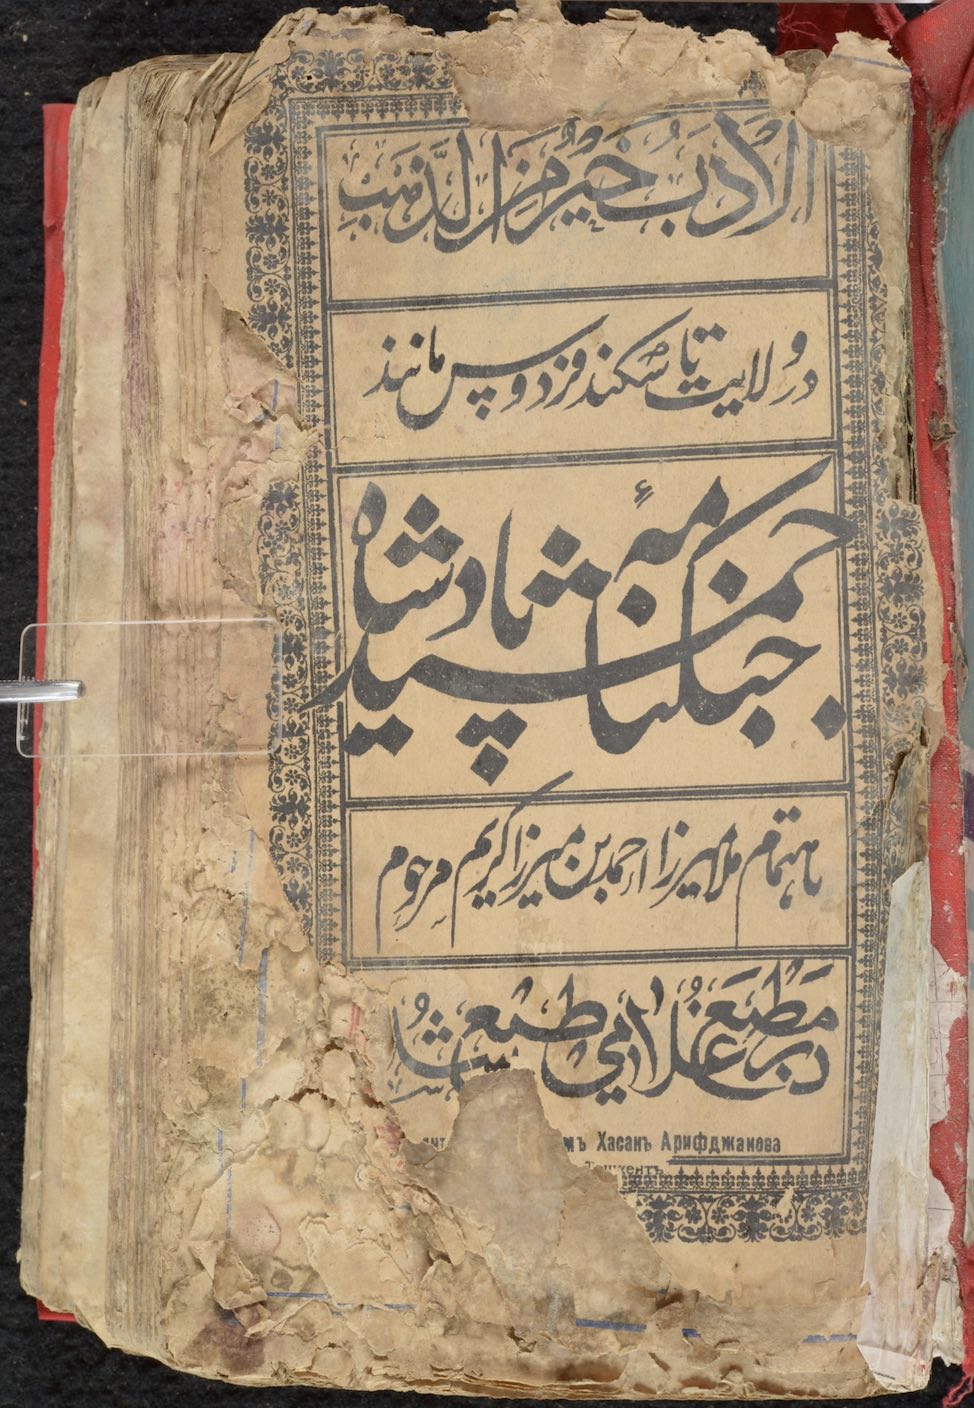 الادب خیر من الذهب
در ولایت تاشکند فردوس مانند
جنگنامهٔ جمشید پادشاه
باهتمام ملا میرزا احمد بن میرزا کریم مرحوم
در مطبعه غلامی طبع شد
Хасанъ Арифджанова
Ташкентъ